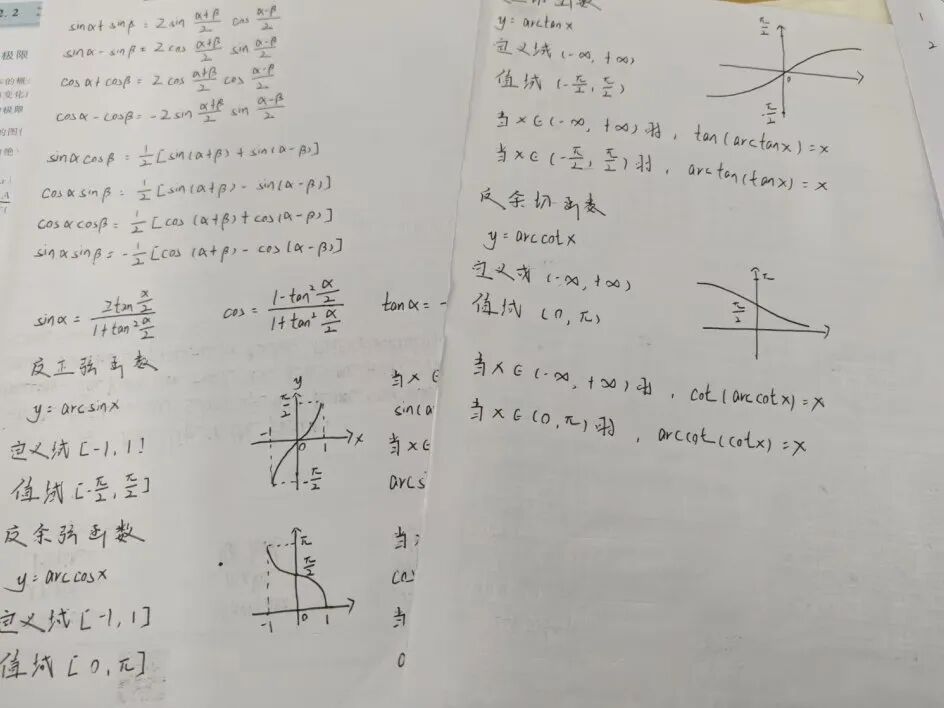 2.2
极限
sinα + sinβ = 2 sin (α+β)/2 cos (α-β)/2
sinα - sinβ = 2 cos (α+β)/2 sin (α-β)/2
cosα + cosβ = 2 cos (α+β)/2 cos (α-β)/2
cosα - cosβ = -2 sin (α+β)/2 sin (α-β)/2
sinα cosβ = 1/2 [sin(α+β) + sin(α-β)]
cosα sinβ = 1/2 [sin(α+β) - sin(α-β)]
cosα cosβ = 1/2 [cos(α+β) + cos(α-β)]
sinα sinβ = -1/2 [cos(α+β) - cos(α-β)]
sinα = 2tan x/2 / 1+tan² α/2 cos = 1-tan² α/2 / 1+tan² α/2 tanα = -
反正弦函数
y = arcsinx
定义域 [-1, 1]
值域 [-π/2, π/2]
y
π/2
-1 0 1 x
-π/2
当 x ∈
sin(a
当 x ∈
arcs
反余弦函数
y = arccosx
定义域 [-1, 1]
值域 [0, π]
π
π/2
-1 0 1
当
co
当
函数
y = arctanx
定义域 (-∞, +∞)
值域 (-π/2, π/2)
π/2
0
-π/2
当 x ∈ (-∞, +∞) 时, tan(arctanx) = x
当 x ∈ (-π/2, π/2) 时, arctan(tanx) = x
反余切函数
y = arccotx
定义域 (-∞, +∞)
值域 (0, π)
π
π/2
当 x ∈ (-∞, +∞) 时, cot(arccotx) = x
当 x ∈ (0, π) 时, arccot(cotx) = x
1
2